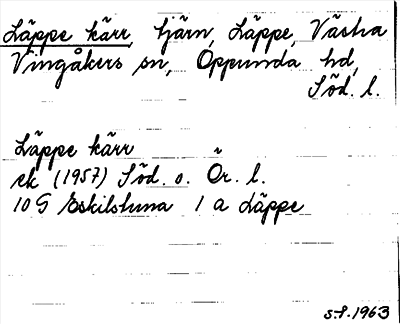 Läppe kärr, tjärn, Läppe, Västra
Vingåkers sn, Oppunda hd,
Söd. l.
Läppe kärr
ek (1957) Söd. o. Ör. l.
10 G Eskilstuna 1 a Läppe
s-f. 1963